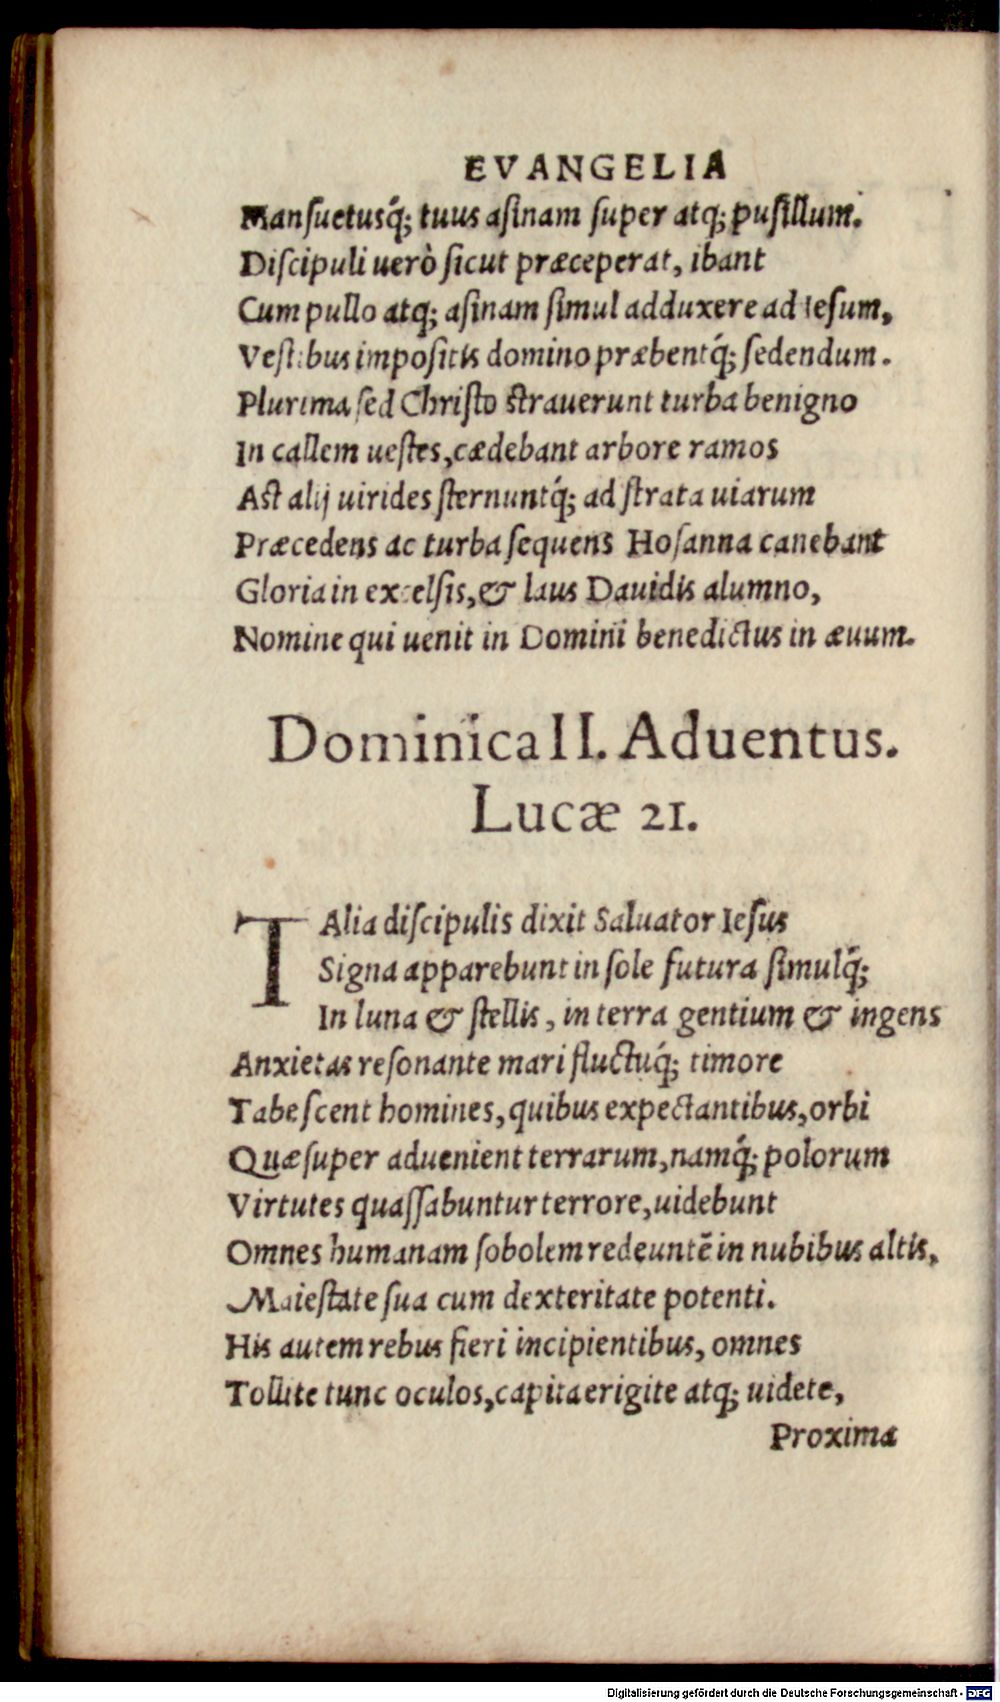 EVANGELIA
Mansuetusq́; tuus asinam super atq; pusillum.
Discipuli uerò sicut præceperat, ibant
Cum pullo atq; asinam simul adduxere ad Iesum,
Vestibus impositis domino præbentq́; sedendum.
Plurima sed Christo strauerunt turba benigno
In callem uestes, cædebant arbore ramos
Ast alij uirides sternuntq́; ad strata uiarum
Præcedens ac turba sequens Hosanna canebant
Gloria in excelsis, & laus Dauidis alumno,
Nomine qui uenit in Domini benedictus in æuum.
Dominica II. Aduentus.
Lucæ 21.
TAlia discipulis dixit Saluator Iesus
Signa apparebunt in sole futura simulq́;
In luna & stellis, in terra gentium & ingens
Anxietas resonante mari fluctuq́; timore
Tabescent homines, quibus expectantibus, orbi
Quæ super aduenient terrarum, namq́; polorum
Virtutes quassabuntur terrore, uidebunt
Omnes humanam sobolem redeuntē in nubibus altis,
Maiestate sua cum dexteritate potenti.
His autem rebus fieri incipientibus, omnes
Tollite tunc oculos, capita erigite atq; uidete,
Proxima
Digitalisierung gefördert durch die Deutsche Forschungsgemeinschaft - DFG